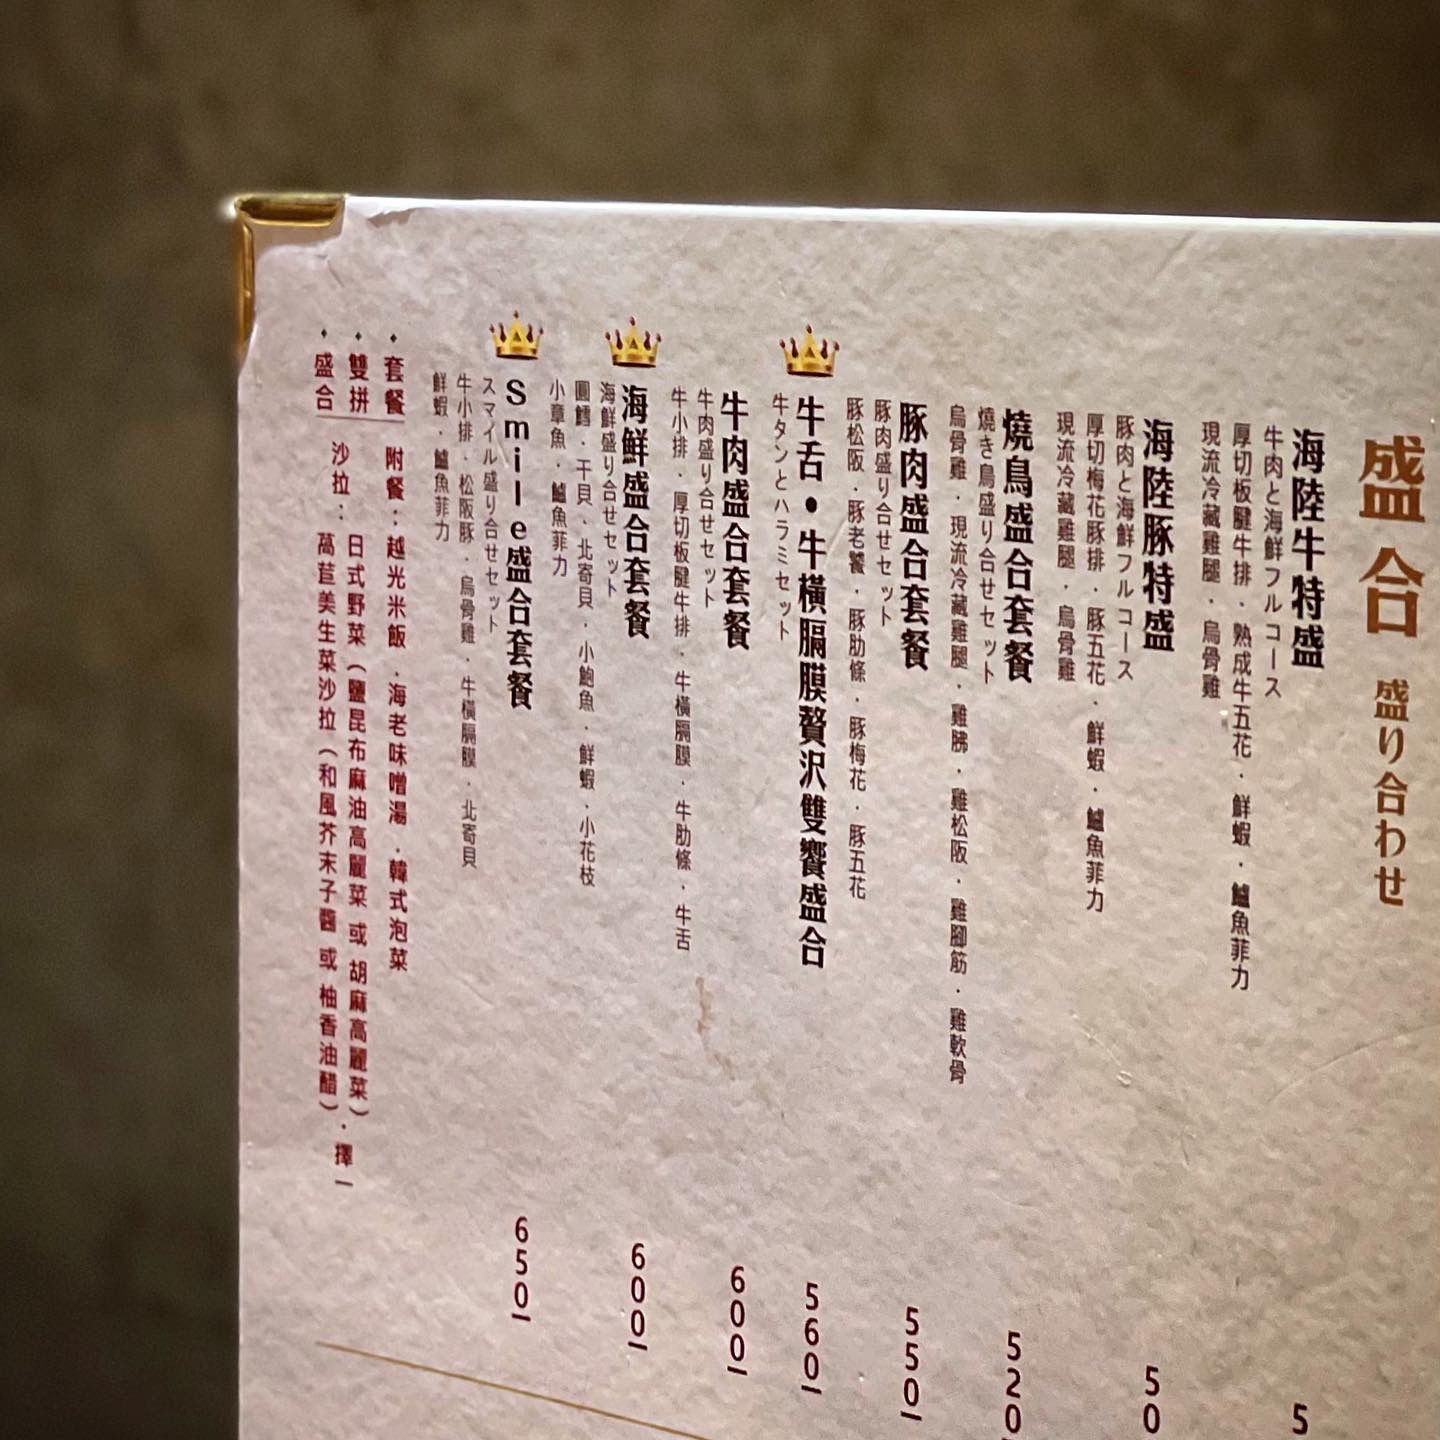 盛合 盛り合わせ
海陸牛特盛
牛肉と海鮮フルコース
厚切板腱牛排．熟成牛五花．鮮蝦．鱸魚菲力
現流冷藏雞腿．烏骨雞
海陸豚特盛
豚肉と海鮮フルコース
厚切梅花豚排．豚五花．鮮蝦．鱸魚菲力
現流冷藏雞腿．烏骨雞
燒鳥盛合套餐 520
燒き鳥盛り合せセット
烏骨雞．現流冷藏雞腿．雞胇．雞松阪．雞腳筋．雞軟骨
豚肉盛合套餐 550/
豚肉盛り合せセット
豚松阪．豚老饕．豚肋條．豚梅花．豚五花
牛舌•牛橫膈膜贅沢雙饗盛合 560/
牛タンとハラミセット
牛肉盛合套餐 600/
牛肉盛り合せセット
牛小排．厚切板腱牛排．牛橫膈膜．牛肋條．牛舌
海鮮盛合套餐 600/
海鮮盛り合せセット
圓鱈．干貝．北寄貝．小鮑魚．鮮蝦．小花枝
小章魚．鱸魚菲力
Smile盛合套餐 650/
スマイル盛り合せセット
牛小排．松阪豚．烏骨雞．牛橫膈膜．北寄貝
鮮蝦．鱸魚菲力
♦套餐 附餐：越光米飯．海老味噌湯．韓式泡菜
♦雙拼
♦盛合
沙拉：日式野菜（鹽昆布麻油高麗菜 或 胡麻高麗菜）．擇一
萵苣美生菜沙拉（和風芥末子醬 或 柚香油醋）